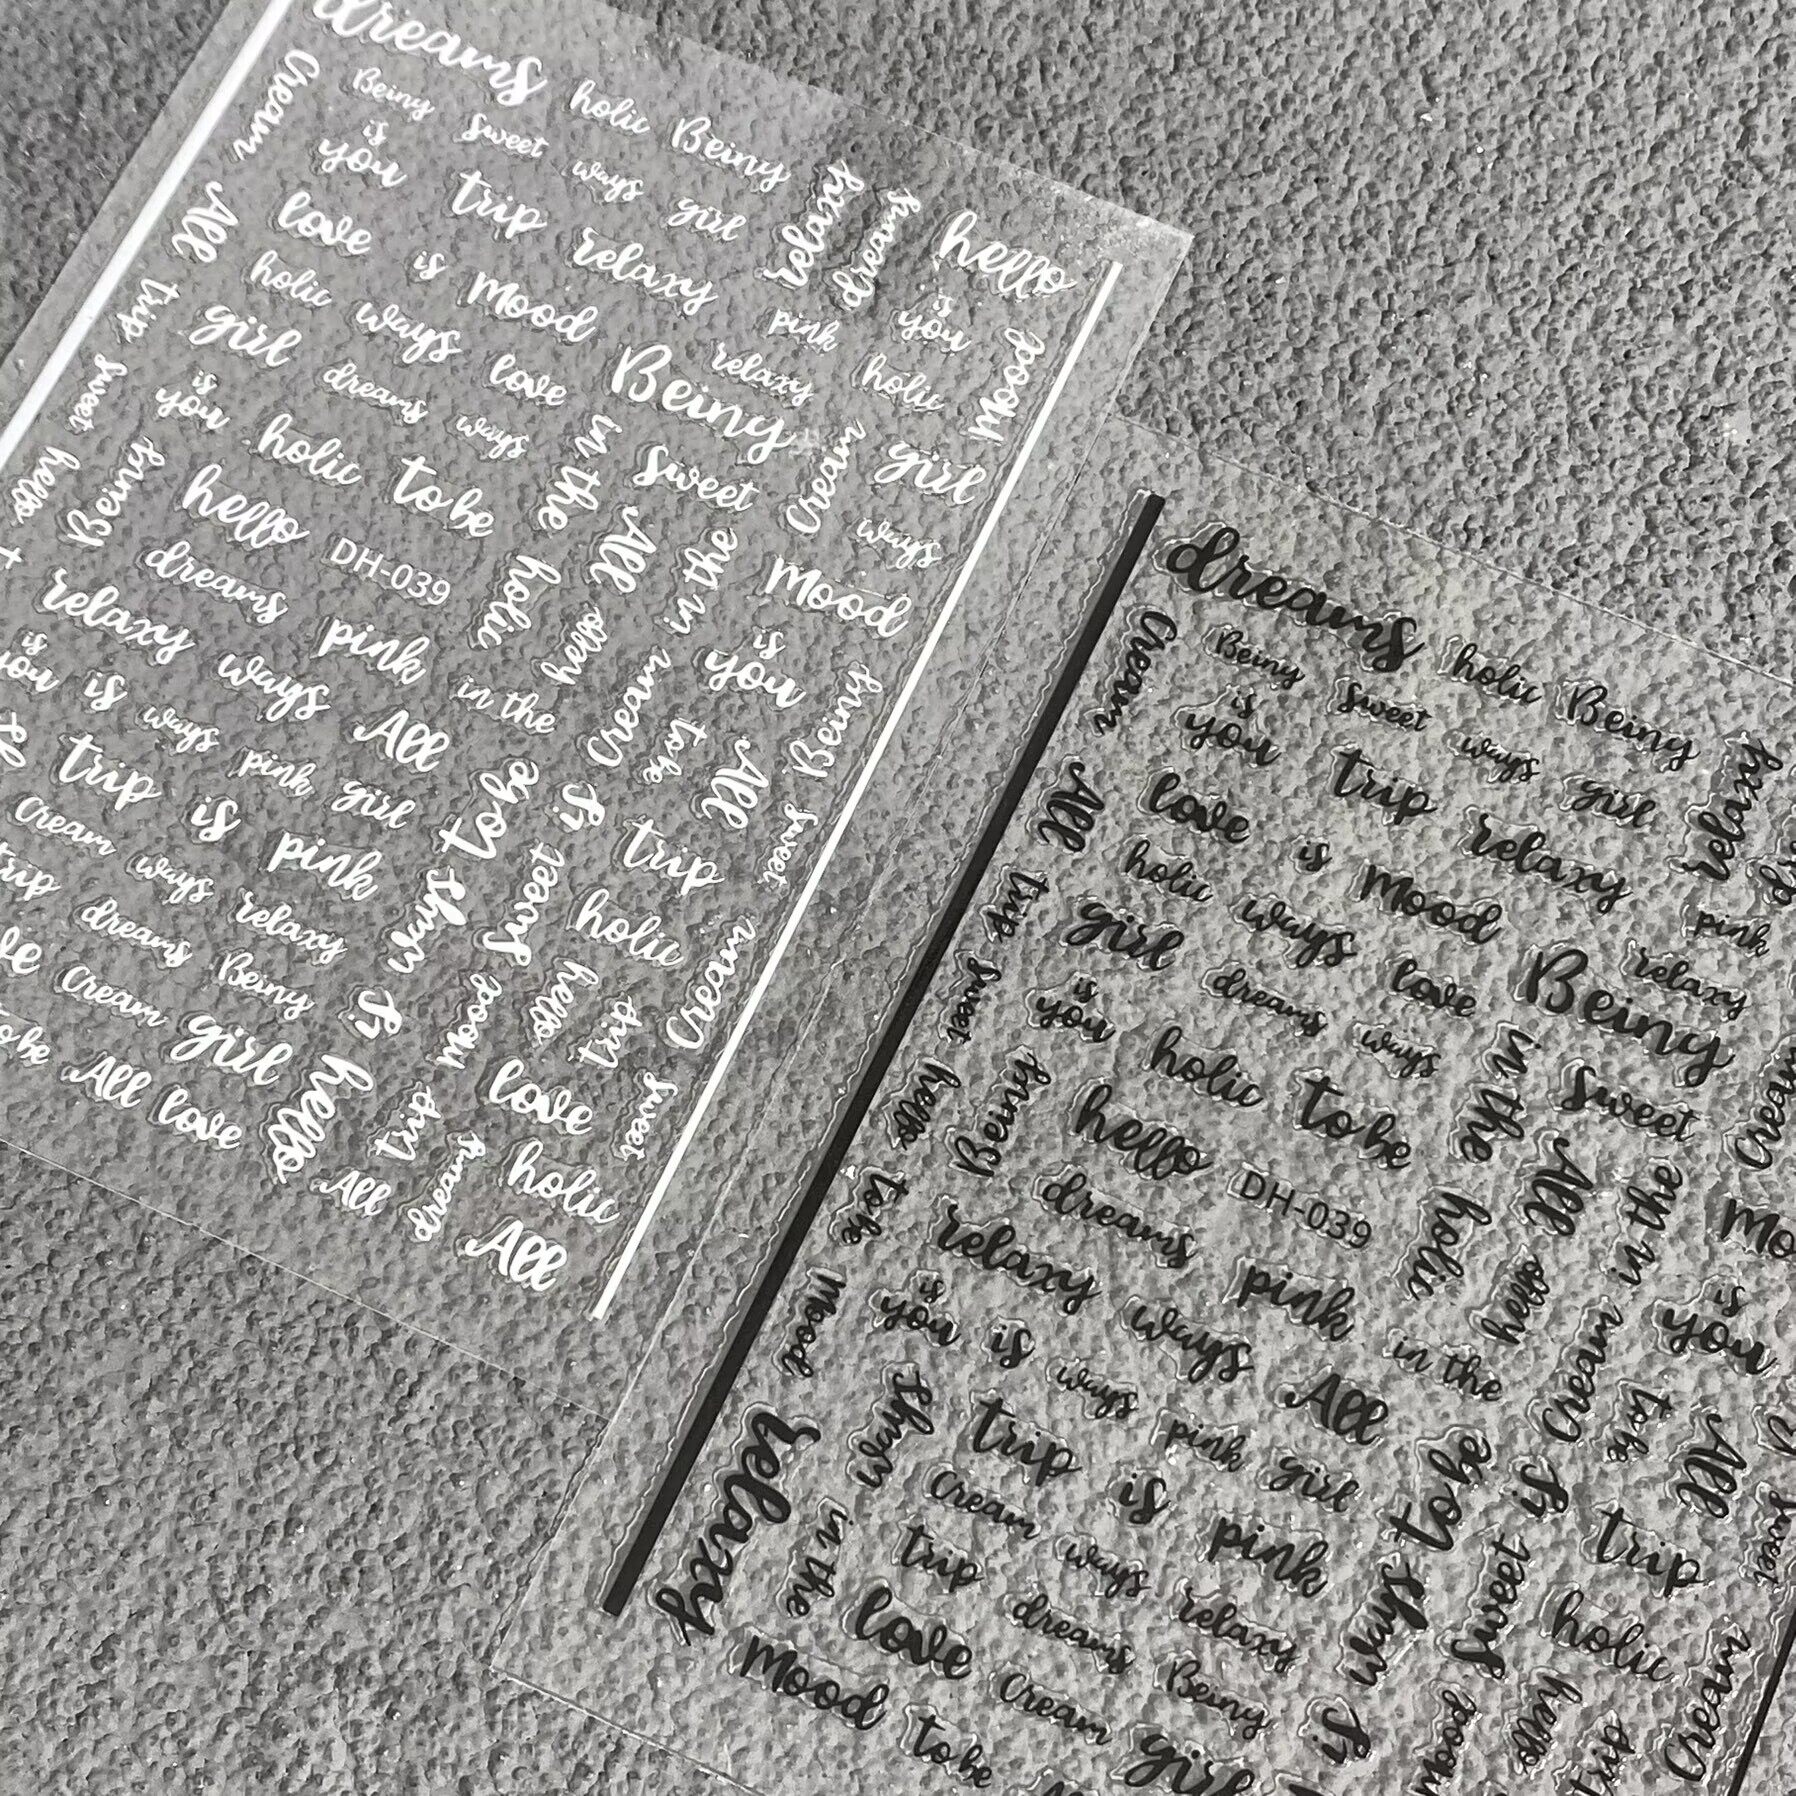 dreams
holic
Beiny
Cream
Beiny
sweet
ways
girl
relaxy
dreams
hello
is
you
trip
relaxy
pink
is
you
Mood
All
love
is
Mood
relaxy
holic
trip
holic
ways
love
Beiny
Cream
girl
girl
dreams
ways
in the
sweet
ways
sweet
is
you
holic
to be
All
in the
Mood
hello
Beiny
hello
DH-039
holic
hello
is
you
Beiny
dreams
pink
in the
Cream
to be
All
relaxy
ways
All
is
you
is
ways
pink
girl
ways to be
is
trip
sweet
trip
is
pink
sweet
holic
Cream
Cream
ways
relaxy
Mood
hello
trip
trip
dreams
Beiny
is
love
sweet
Cream
girl
hello
trip
dreams
holic
to be
All
love
All
All
dreams
holic
Beiny
Cream
Beiny
sweet
ways
girl
relaxy
is
you
trip
relaxy
pink
All
love
is
Mood
relaxy
trip
holic
ways
love
Beiny
Cream
girl
dreams
ways
in the
sweet
sweet
is
you
holic
to be
All
in the
hello
Beiny
hello
DH-039
holic
hello
is
you
to be
dreams
pink
in the
Cream
to be
All
relaxy
ways
All
Mood
is
you
is
ways
pink
girl
ways to be
is
trip
sweet
relaxy
trip
is
pink
sweet
holic
Cream
in the
Cream
ways
relaxy
Mood
hello
trip
trip
dreams
Beiny
is
love
Cream
girl
Mood
to be